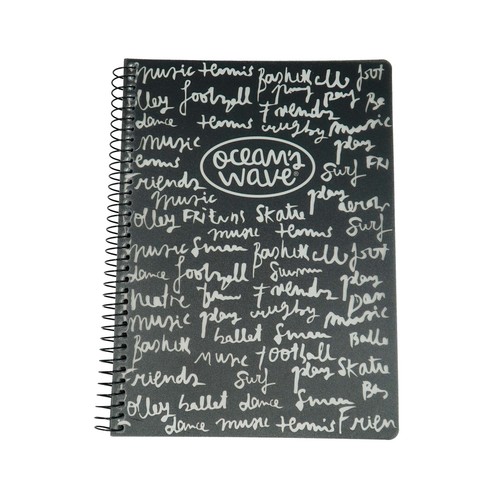 music tennis baskell foot
olley football play play Ba
dance tennis friends rugby music
music play
ennis ocean's wave® surf FRI
riends play
music aerob
olley FRIENDS Skate surf
music tennis
music Swam baskell foot
dance football Swam play
heatre friends Dan
music play rugby music
ballet Swam Balle
Baskell music football play Skate
riends surf Bas
olley ballet dance Swam
dance music tennis Frien